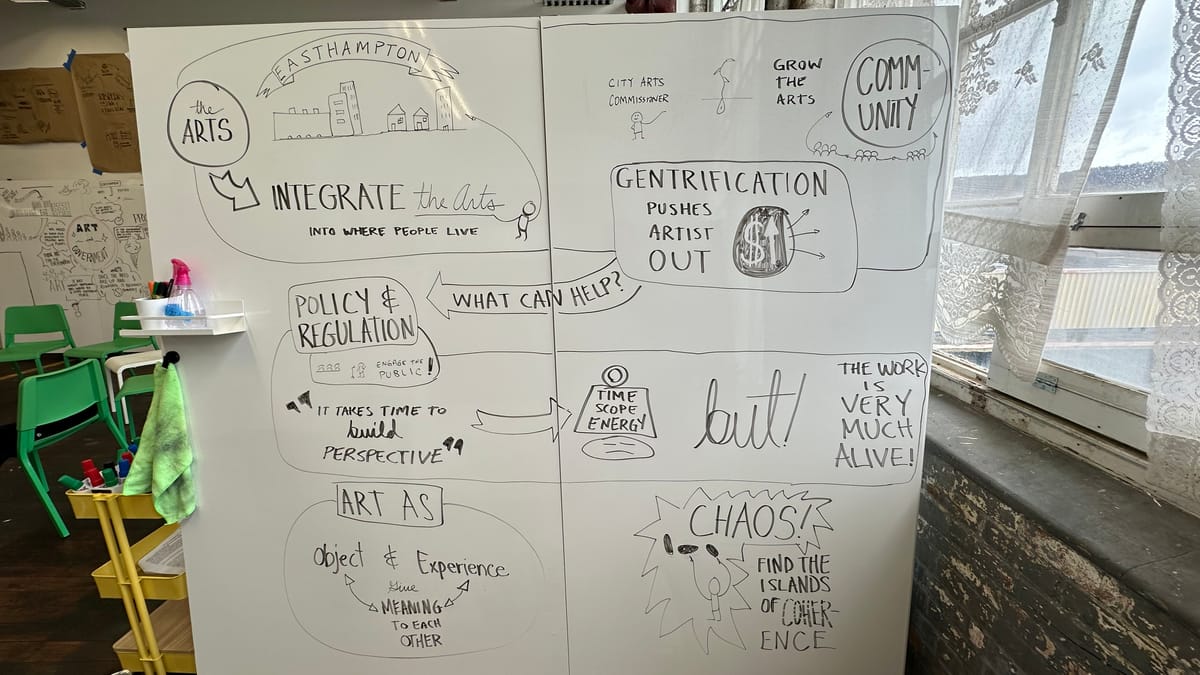 EASTHAMPTON
the
ARTS
INTEGRATE the Arts
INTO WHERE PEOPLE LIVE
CITY ARTS
COMMISSIONER
GROW
THE
ARTS
COMM-
UNITY
GENTRIFICATION
PUSHES
ARTIST
OUT
$
WHAT CAN HELP?
POLICY &
REGULATION
ENGAGE THE
PUBLIC!
"IT TAKES TIME TO
build
PERSPECTIVE"
TIME
SCOPE
ENERGY
but!
THE WORK
IS
VERY
MUCH
ALIVE!
ART AS
Object & Experience
Give
MEANING
TO EACH
OTHER
CHAOS!
FIND THE
ISLANDS
OF COHER-
ENCE
ART
and
GOVERNMENT